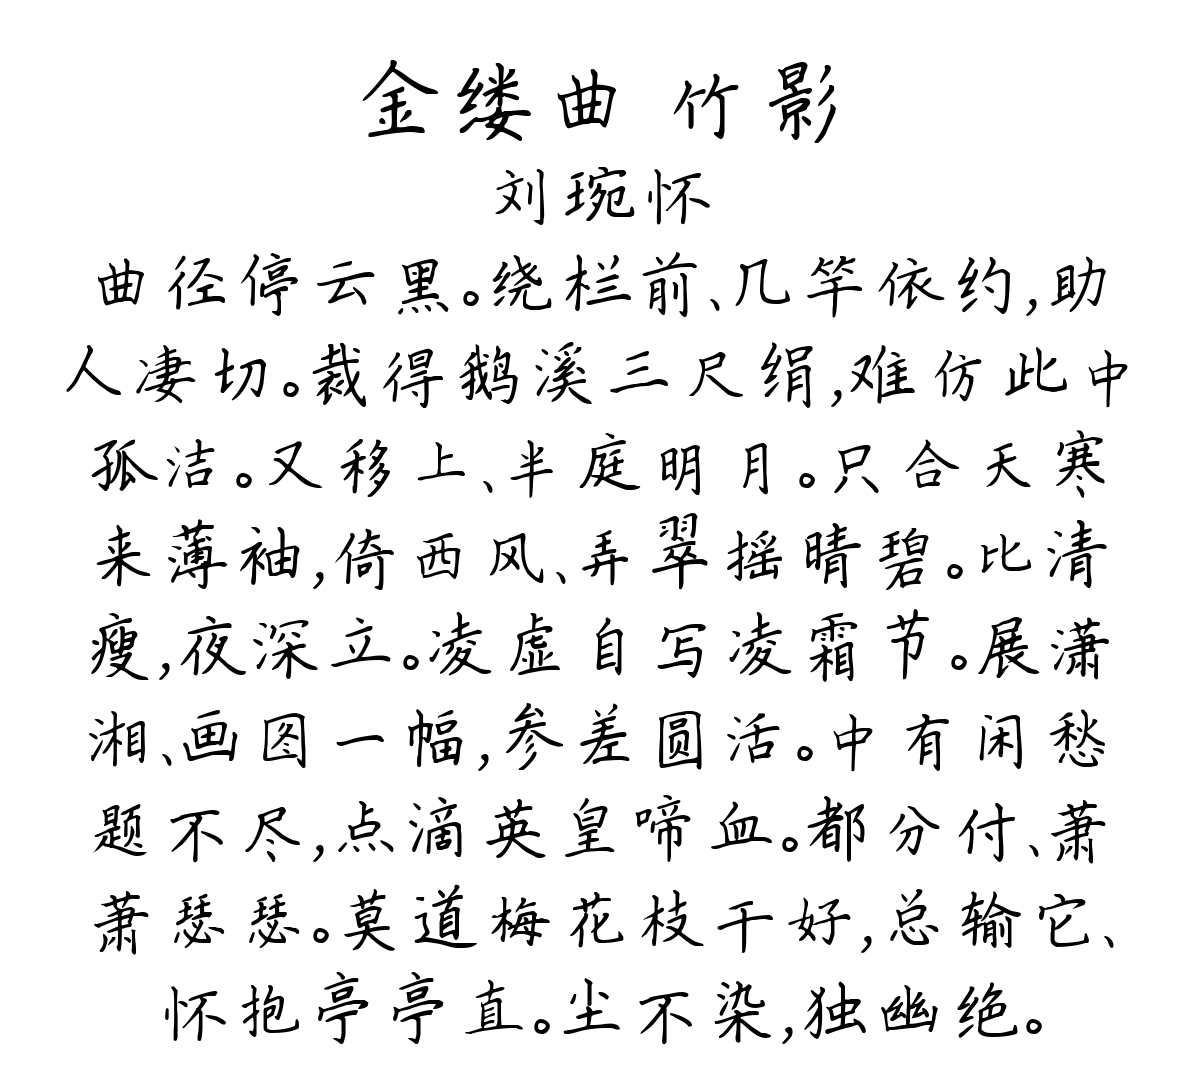 金缕曲 竹影
刘琬怀
曲径停云黑。绕栏前、几竿依约,助
人凄切。裁得鹅溪三尺绢,难仿此中
孤洁。又移上、半庭明月。只合天寒
来薄袖,倚西风、弄翠摇晴碧。比清
瘦,夜深立。凌虚自写凌霜节。展潇
湘、画图一幅,参差圆活。中有闲愁
题不尽,点滴英皇啼血。都分付、萧
萧瑟瑟。莫道梅花枝干好,总输它、
怀抱亭亭直。尘不染,独幽绝。